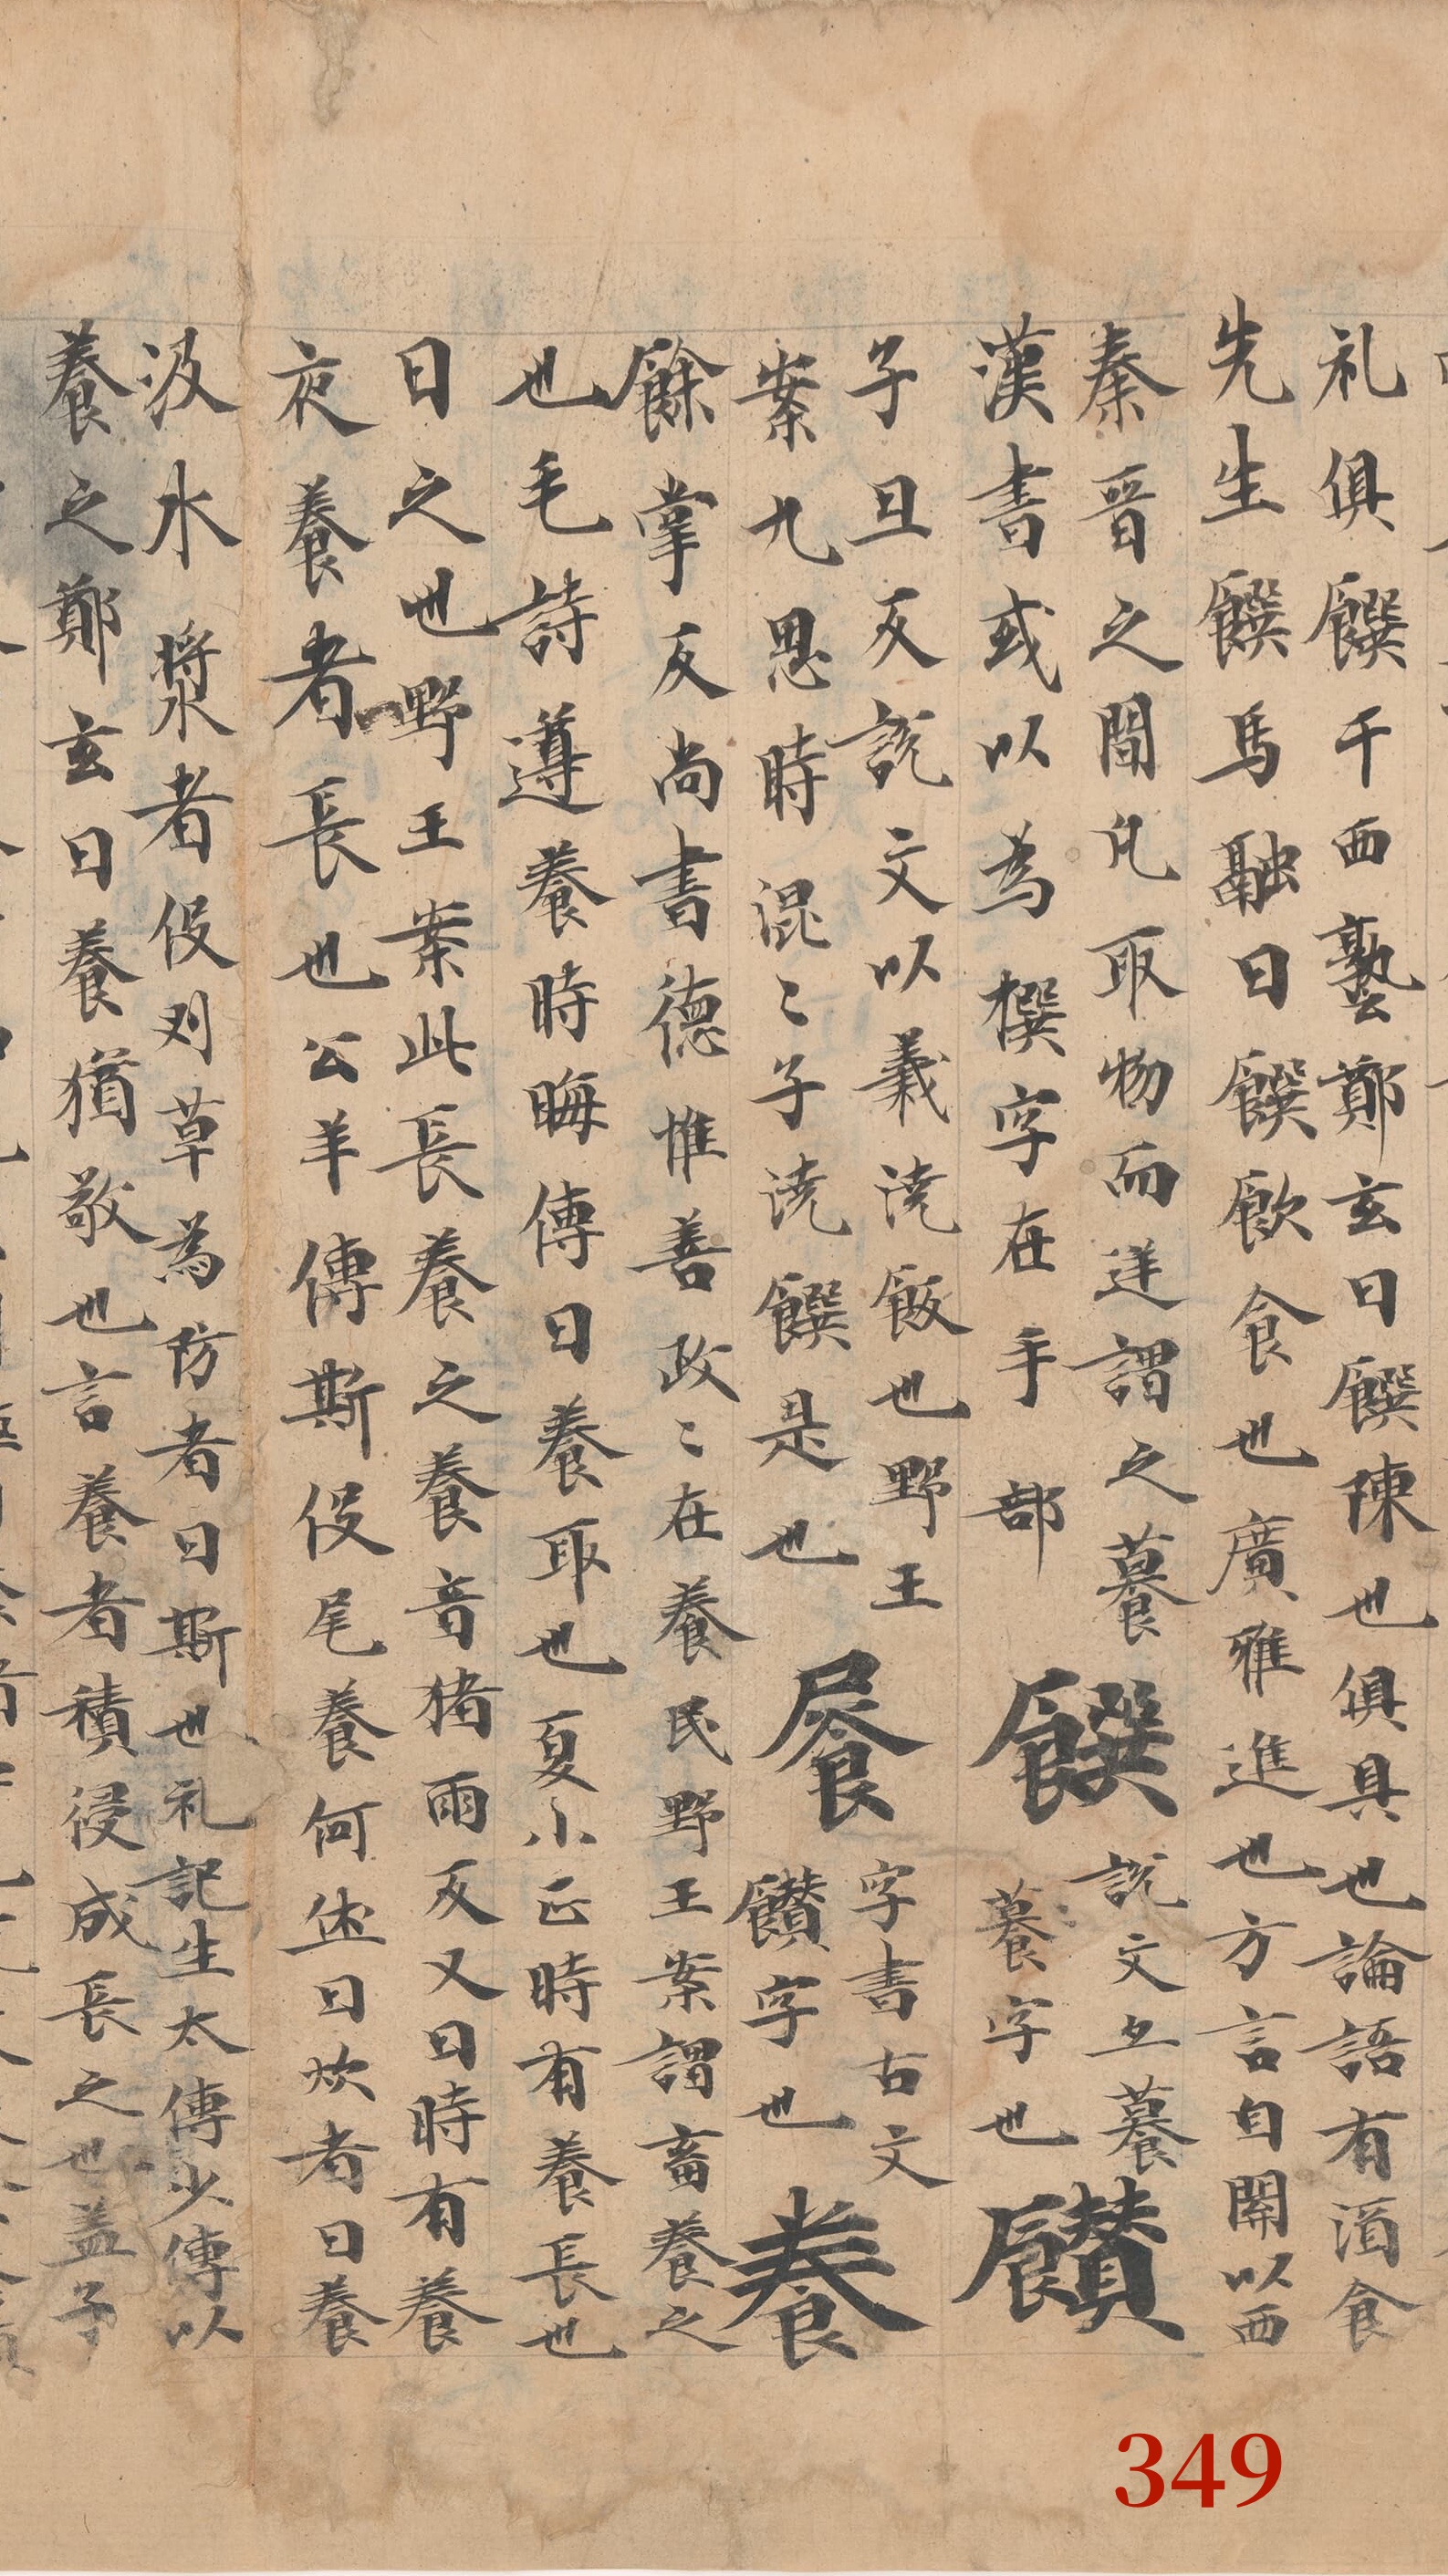 礼俱饌千西塾鄭玄曰饌陳也俱具也論語有酒食
先生饌馬融曰饌飲食也廣雅進也方言自關以西
秦晉之間凡取物而逆謂之籑
漢書或以為撰字在手部
饌
說文亦籑
籑字也
饡
子旦反說文以羹澆飯也野王
案九思時混〻子澆饌是也
字書古文
饡字也
養
餘掌反尚書德惟善政〻在養民野王案謂畜養之
也毛詩遵養時晦傳曰養取也夏小正時有養長也
曰之也野王案此長養之養音猪雨反又曰時有養
夜養者長也公羊傳斯役尾養何休曰炊者曰養
汲水漿者役刈草為防者曰斯也礼記生太傅少傅以
養之鄭玄曰養猶敬也言養者積浸成長之也孟子
349